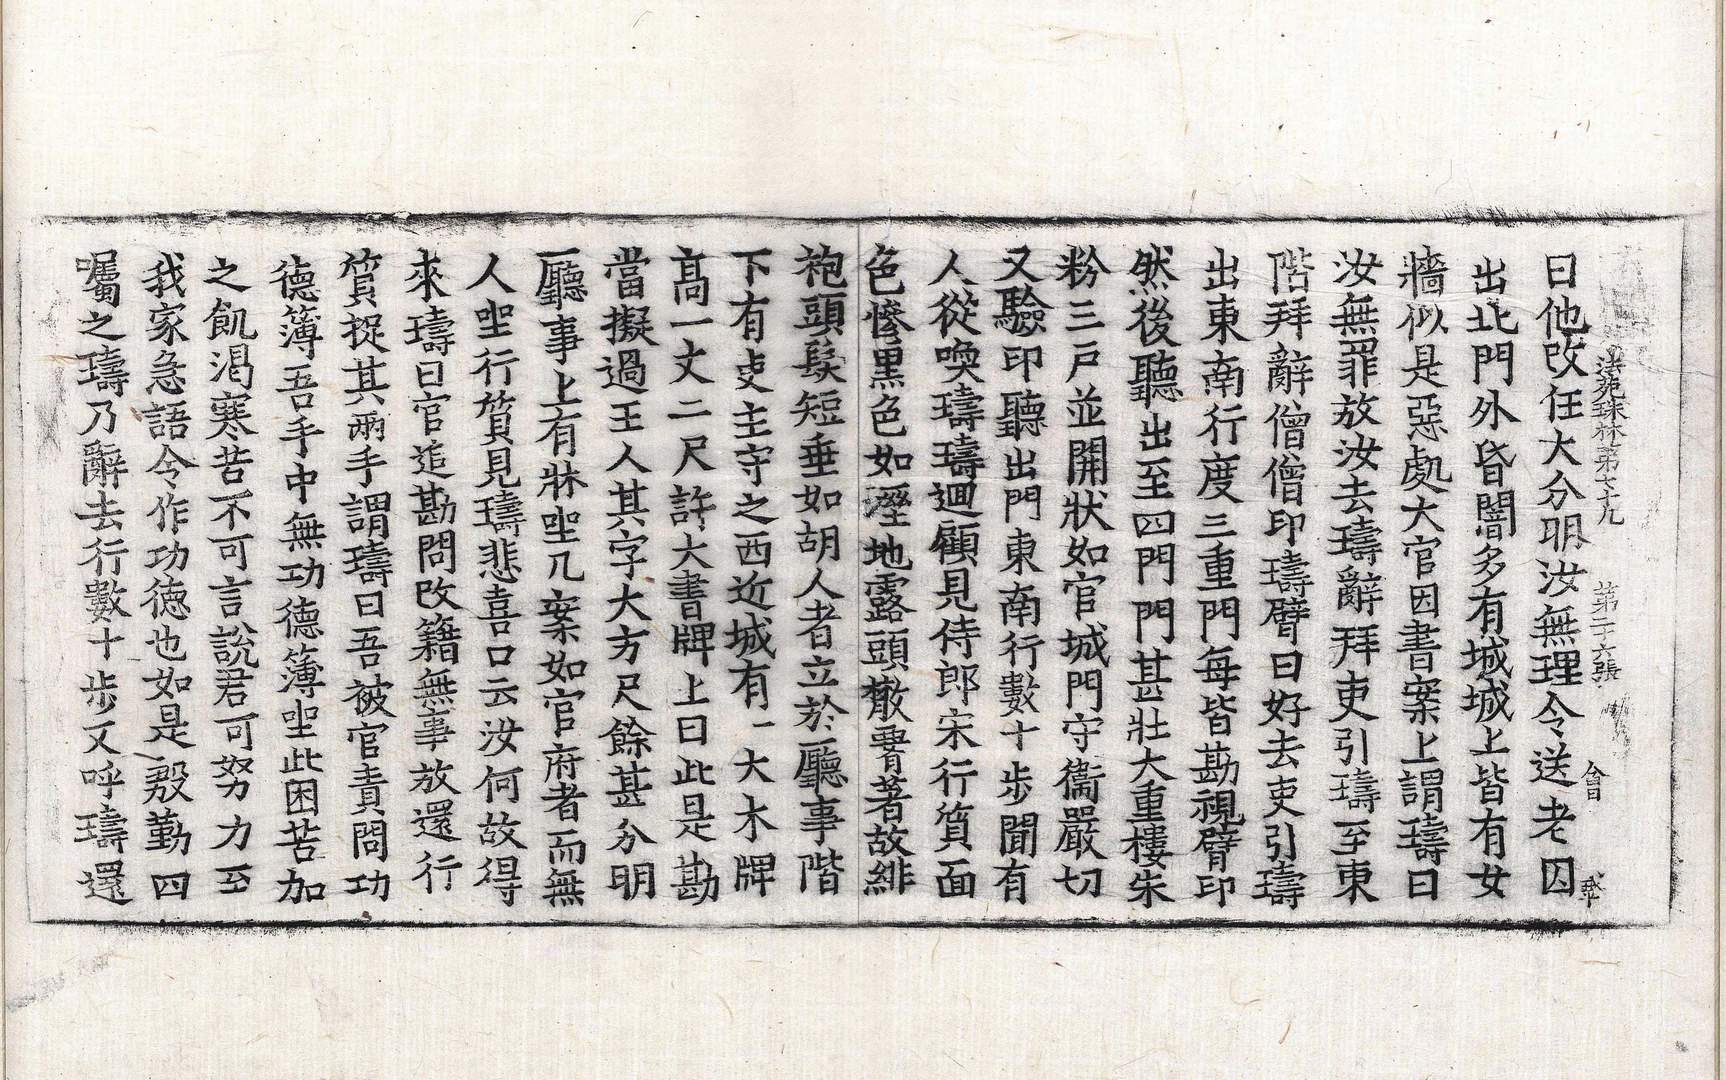 法苑珠林第七十九 第二十六張 會
曰他改任大分明汝無理令送老囚
出北門外昏闇多有城城上皆有女
牆似是惡處大官因書案上謂璹曰
汝無罪放汝去璹辭拜吏引璹至東
階拜辭僧僧印璹臂曰好去吏引璹
出東南行度三重門每皆勘視臂印
然後聽出至四門門甚壯大重樓朱
粉三戸並開狀如官城門守衞嚴切
又驗印聽出門東南行數十步聞有
人從喚璹璹迴顧見侍郎宋行質面
色慘黑色如溼地露頭散署著故緋
袍頭髮短垂如胡人者立於廳事階
下有吏主守之西近城有一大木牌
高一丈二尺許大書牌上曰此是勘
當擬過王人其字大方尺餘甚分明
廳事上有牀坐几案如官府者而無
人坐行質見璹悲喜口云汝何故得
來璹曰官追勘問改籍無事放還行
質捉其兩手謂璹曰吾被官責問功
德簿吾手中無功德簿坐此困苦加
之飢渴寒苦不可言說君可努力至
我家急語令作功德也如是殷勤四
囑之璹乃辭去行數十步又呼璹還